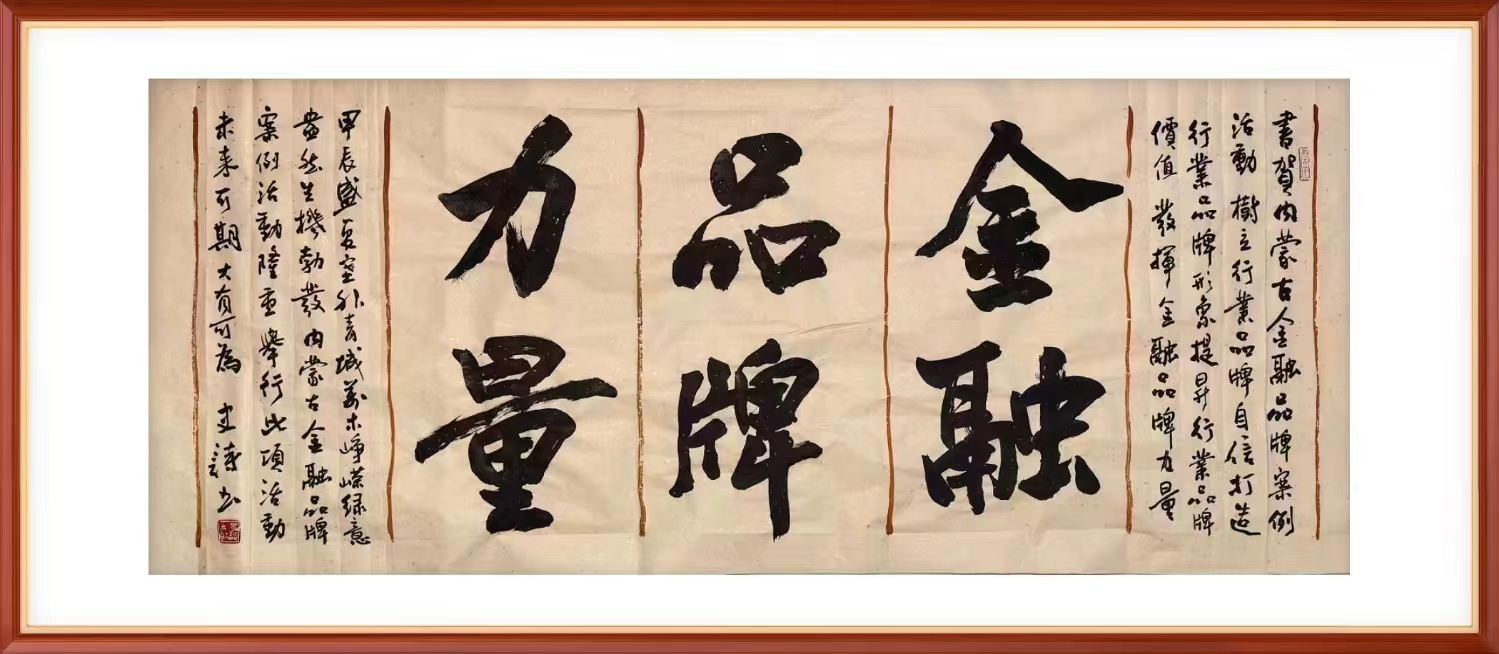 書賀内蒙古金融品牌案例
活動樹立行業品牌自信打造
行業品牌形象提昇行業品牌
價值發揮金融品牌力量
金融
品牌
力量
甲辰盛夏塞外青城萬木崢嶸緑意
盎然生機勃發内蒙古金融品牌
案例活動隆重舉行此項活動
未来可期大有可為 史詩书